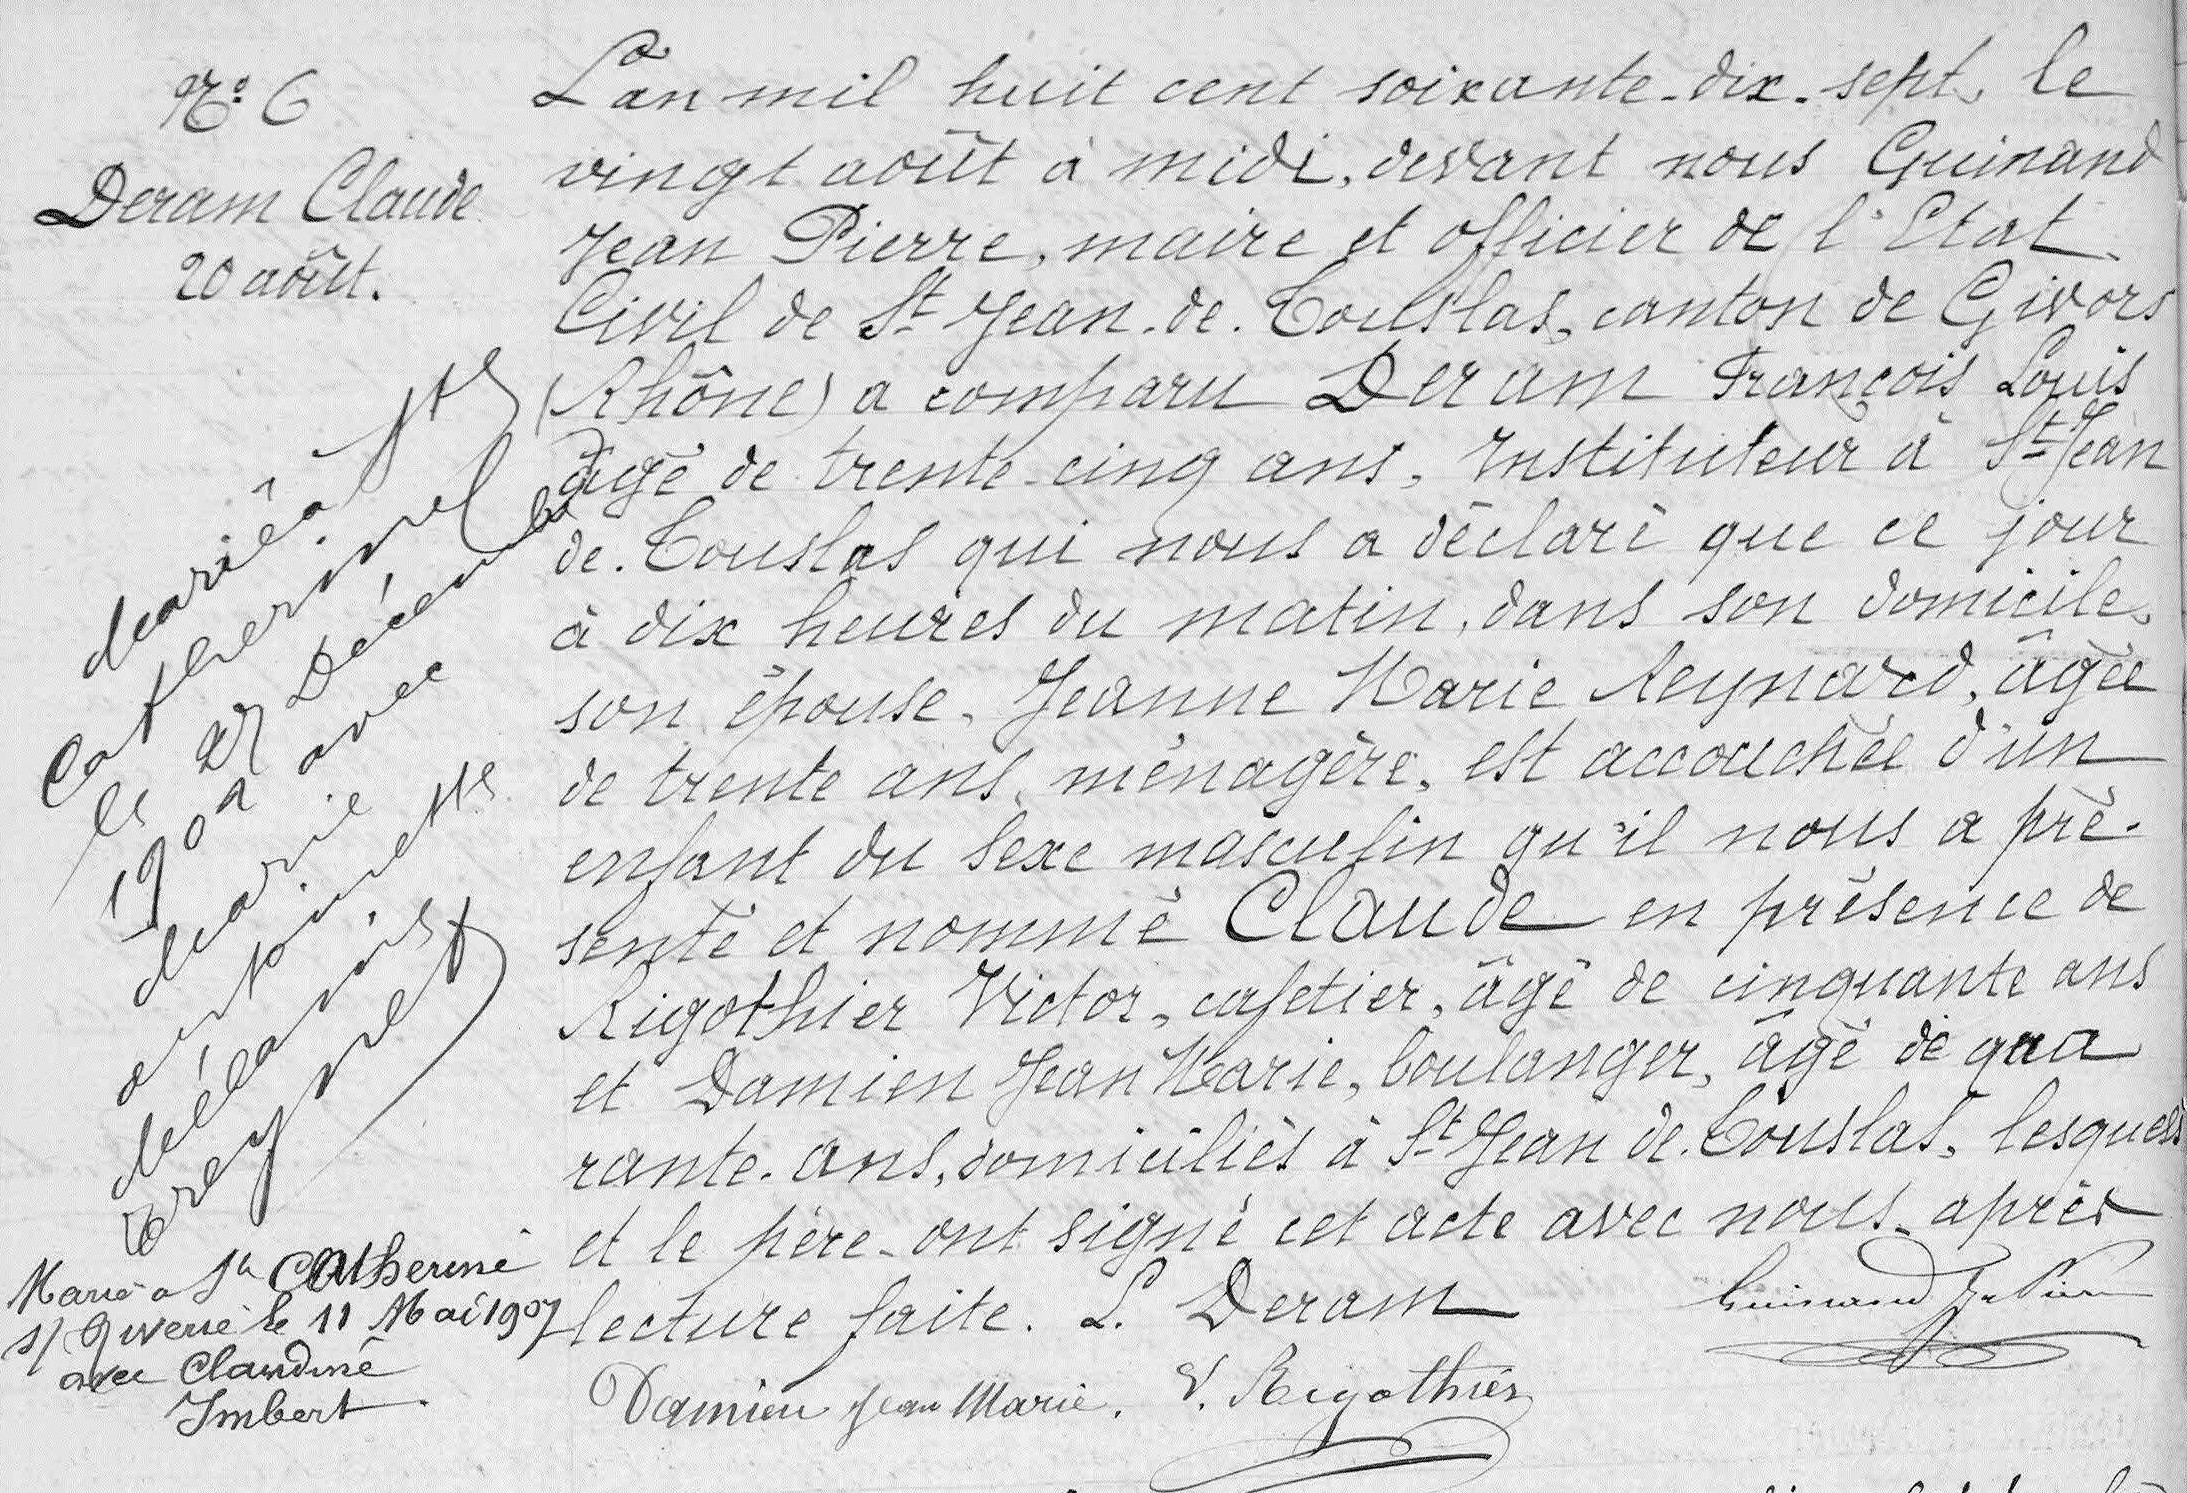 N.º 6
Deram Claude
20 août.
Marié à Ste
Catherine
le 27 Décembre
1902 avec
Marie
antoinette
mélanie
Treynet
Marié a Ste Catherine
s/ Riverie le 11 Mai 1907
avec Claudine
Imbert
L'an mil huit cent soixante-dix-sept, le
vingt août à midi, devant nous Guinand
Jean Pierre, maire et officier de l'Etat
Civil de St Jean-de-Touslas, canton de Givors
(Rhône) a comparu Deram François Louis
âgé de trente-cinq ans, Instituteur à St Jean
de-Touslas qui nous a déclaré que ce jour
à dix heures du matin, dans son domicile,
son épouse, Jeanne Marie Reynard, âgée
de trente ans, ménagère, est accouchée d'un
enfant du sexe masculin qu'il nous a pré-
senté et nommé Claude en présence de
Rigothier Victor, cafetier, âgé de cinquante ans
et Damien Jean Marie, boulanger, âgé de qua
rante-ans, domiciliés à St Jean de-Touslas, lesquels
et le père ont signé cet acte avec nous, après
lecture faite. L. Deram
Guinand Jn Pierre
Damien Jean Marie. V. Rigothier